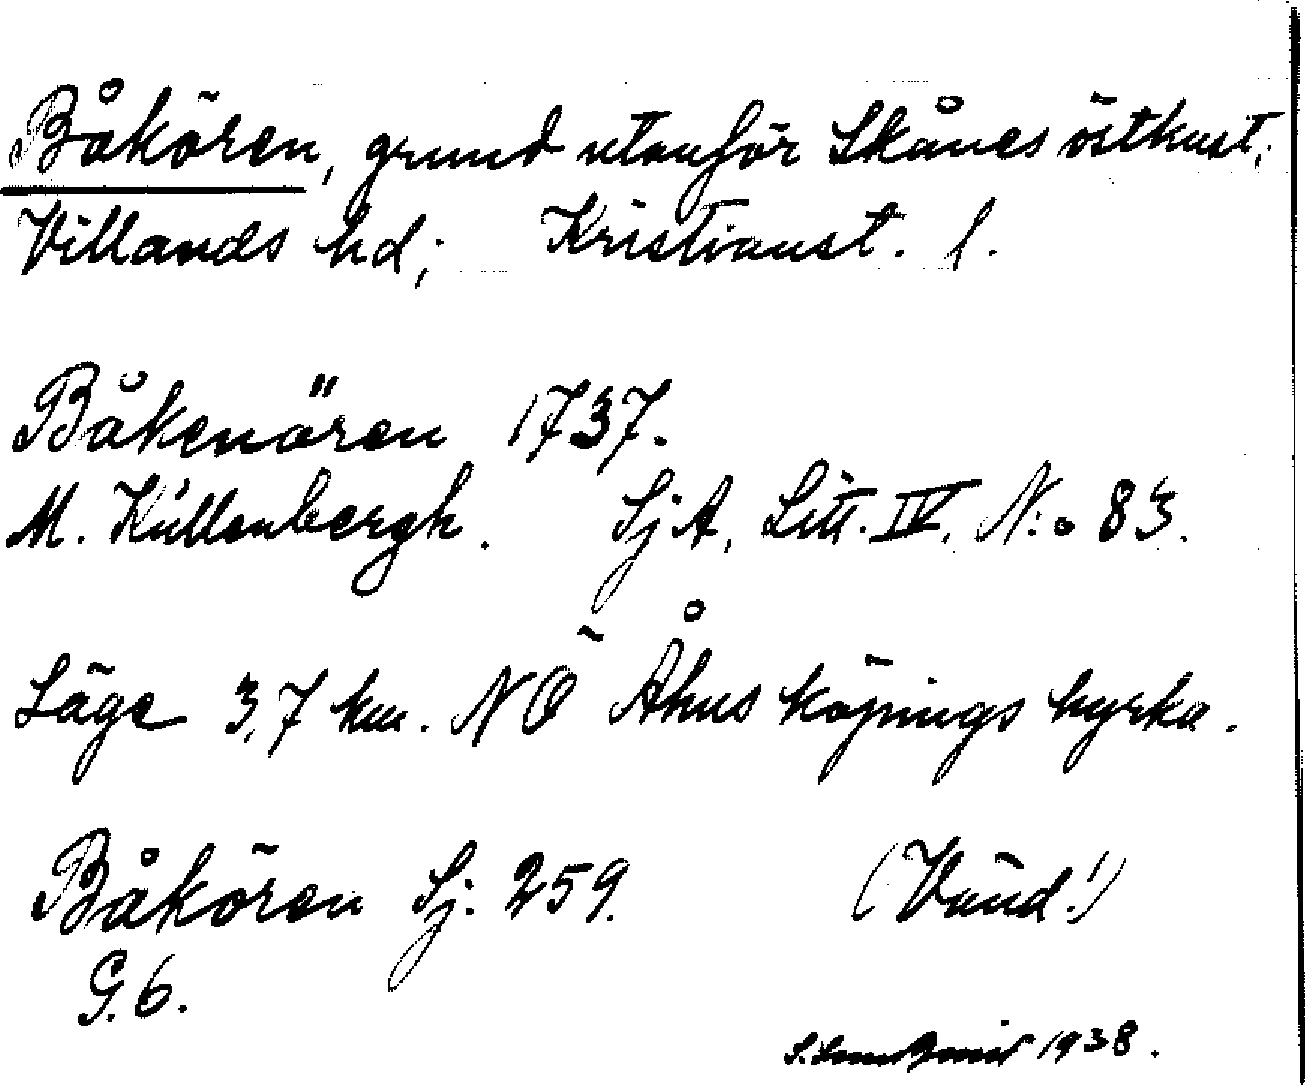 Båkören, grund utanför Skånes östkust,
Villands hd; Kristianst. l.
Båkenören 1737.
M. Küllenbergh. SjA, Litt. IV, N:o 83.
Läge 3,7 km. NÖ Åhus köpings kyrka.
Båkören Sj. 259. (Vänd!)
G. 6.
1938.